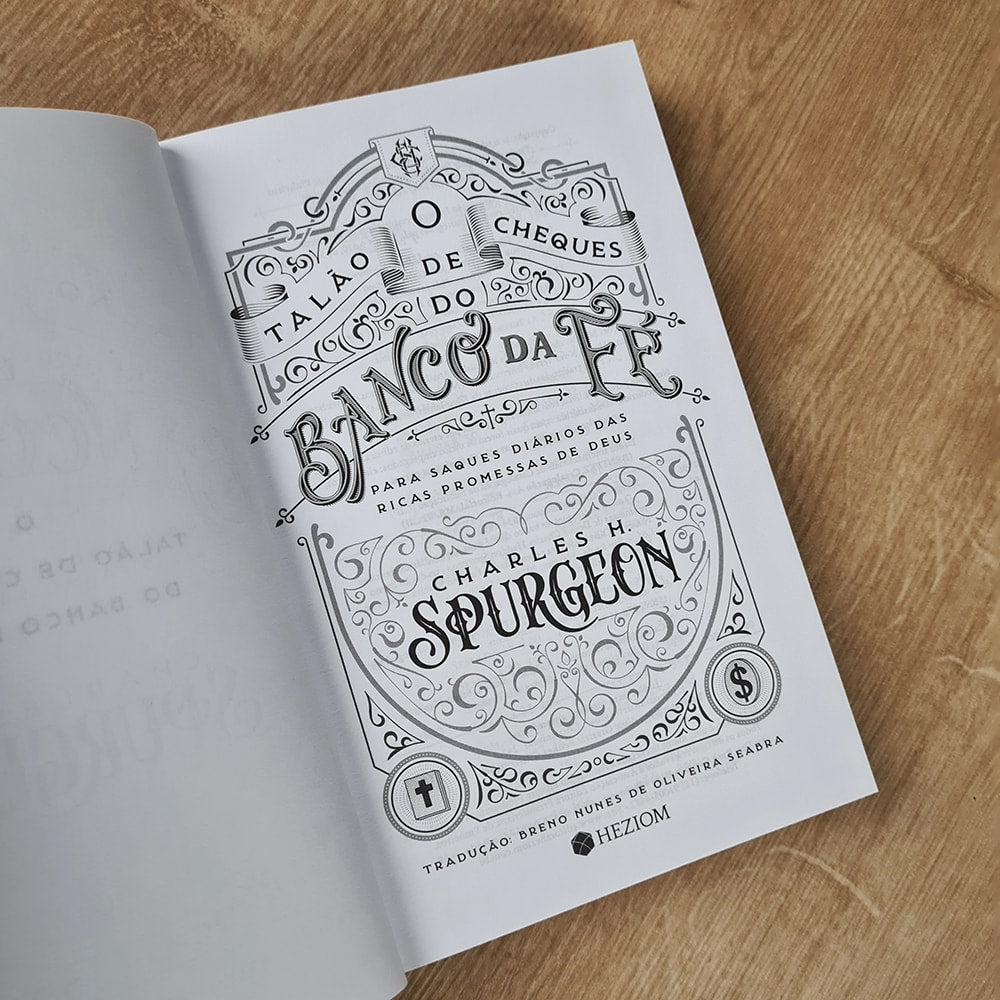 O
TALÃO DE CHEQUES
DO
BANCO DA FÉ
PARA SAQUES DIÁRIOS DAS
RICAS PROMESSAS DE DEUS
CHARLES H.
SPURGEON
$
TRADUÇÃO: BRENO NUNES DE OLIVEIRA SEABRA
HEZIOM